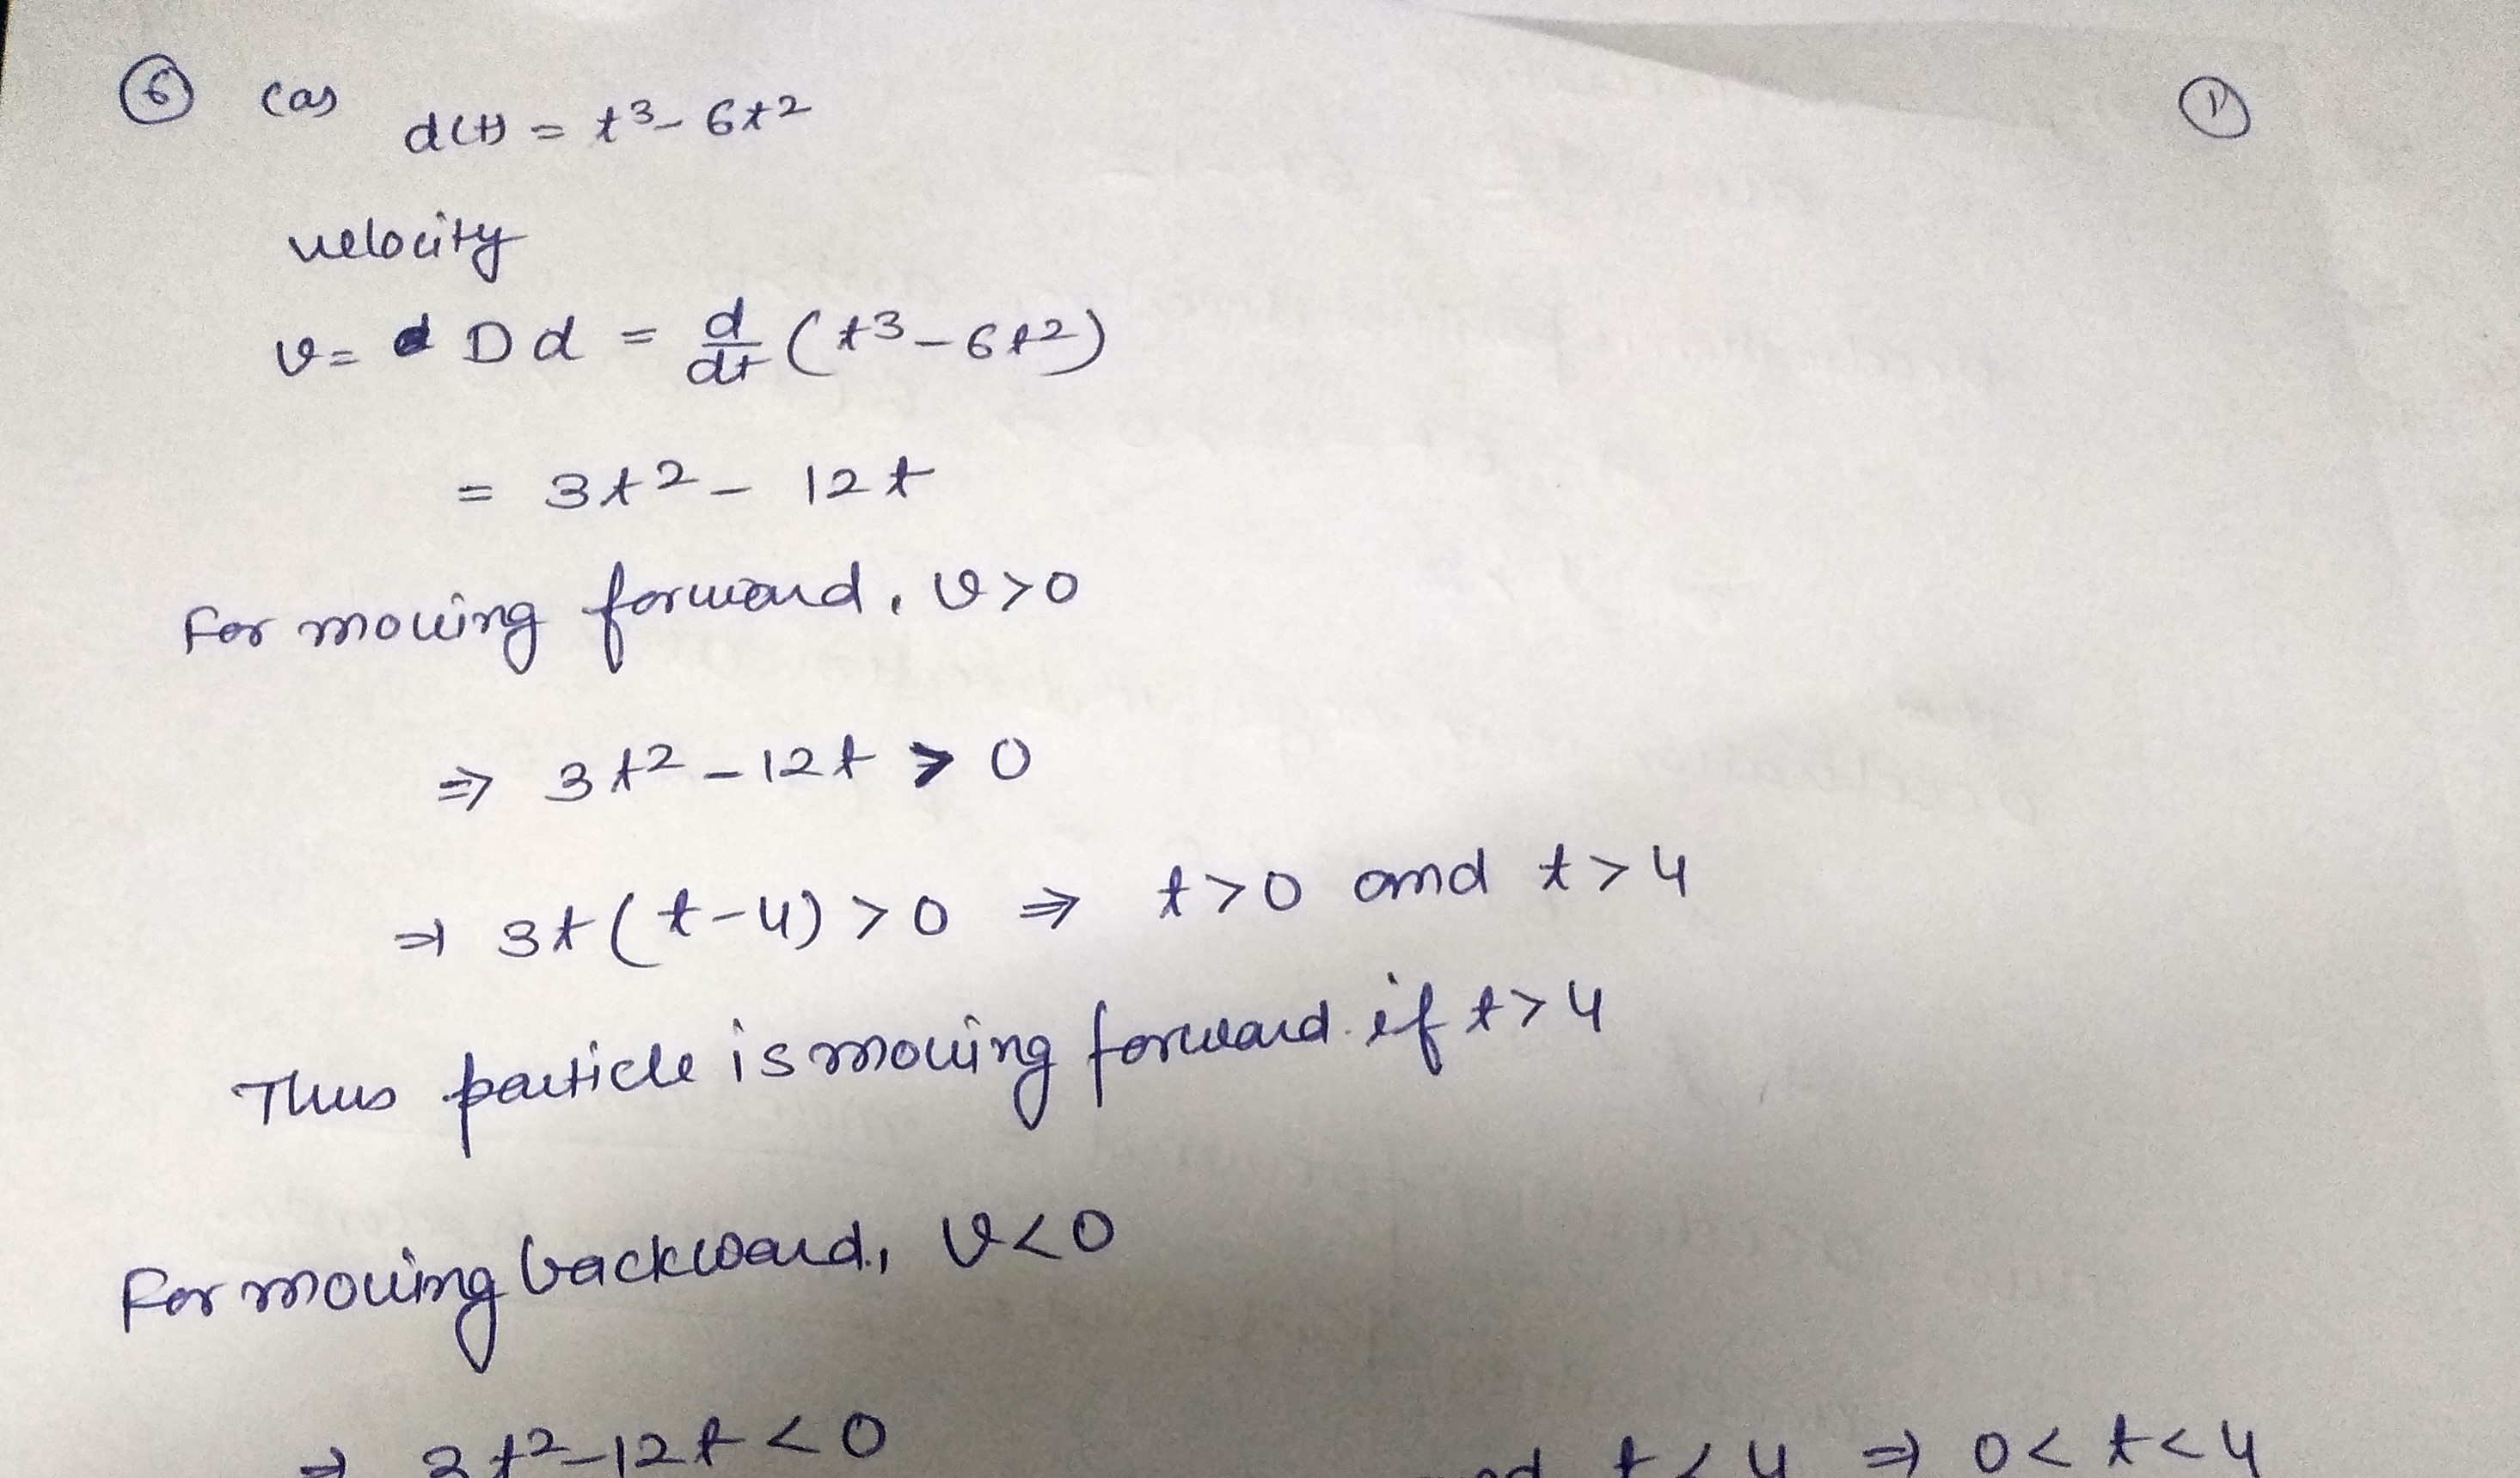 ⑥ (a) d(t) = t³ - 6t² ①
velocity
v = D d = d/dt (t³ - 6t²)
= 3t² - 12t
For moving forward, v>0
⇒ 3t² - 12t > 0
⇒ 3t(t-4) > 0 ⇒ t>0 and t>4
Thus particle is moving forward if t>4
For moving backward, v<0
⇒ 3t² - 12t < 0 and t<4 ⇒ 0<t<4